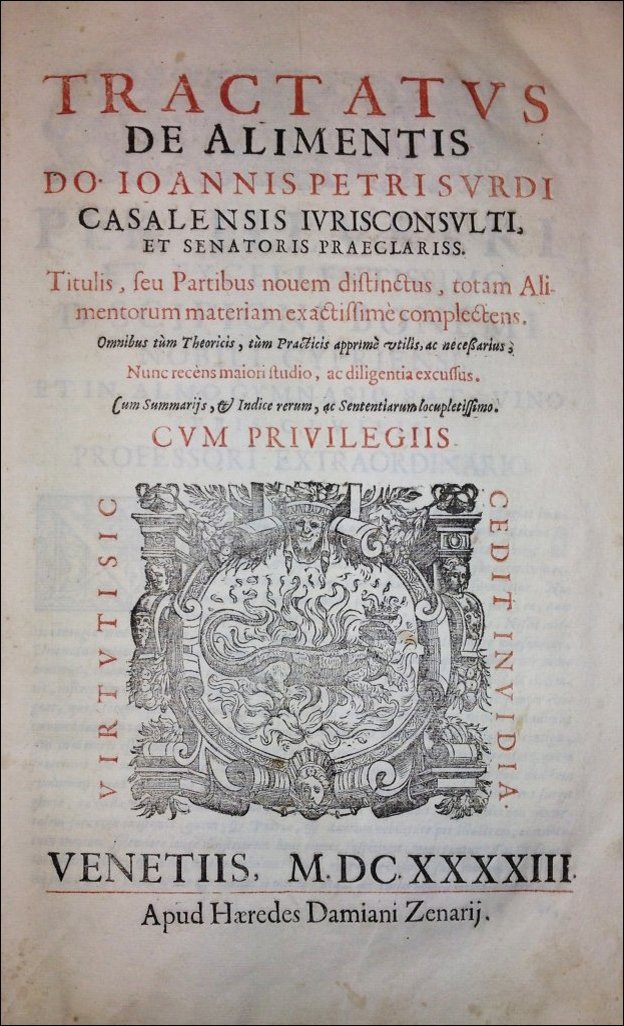 TRACTATVS
DE ALIMENTIS
DO· IOANNIS PETRI SVRDI
CASALENSIS IVRISCONSVLTI,
ET SENATORIS PRAECLARISS.
Titulis, ſeu Partibus nouem diſtinctus, totam Ali-
mentorum materiam exactiſſimè complectens.
Omnibus tùm Theoricis, tùm Practicis apprimè vtilis, ac neceßarius;
Nunc recèns maiori ſtudio, ac diligentia excuſſus.
Cum Summarijs, & Indice rerum, ac Sententiarum locupletiſſimo.
CVM PRIVILEGIIS.
VIRTVTI SIC
CEDIT INVIDIA.
VENETIIS, M. DC. XXXXIII.
Apud Hæredes Damiani Zenarij.